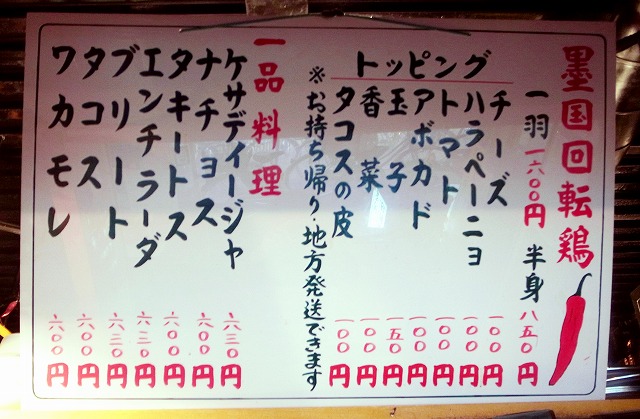 墨国回転鶏
一羽 一六〇〇円 半身 八五〇円
トッピング
チーズ 一〇〇円
ハラペーニョ 一〇〇円
トマト 一〇〇円
アボカド 一〇〇円
玉子 一五〇円
香菜 一〇〇円
タコスの皮 一〇〇円
※お持ち帰り・地方発送できます
一品料理
ケサディージャ 六三〇円
ナチョス 六〇〇円
タキートス 六〇〇円
エンチラーダ 六三〇円
ブリート 六三〇円
タコス 六〇〇円
ワカモレ 六〇〇円